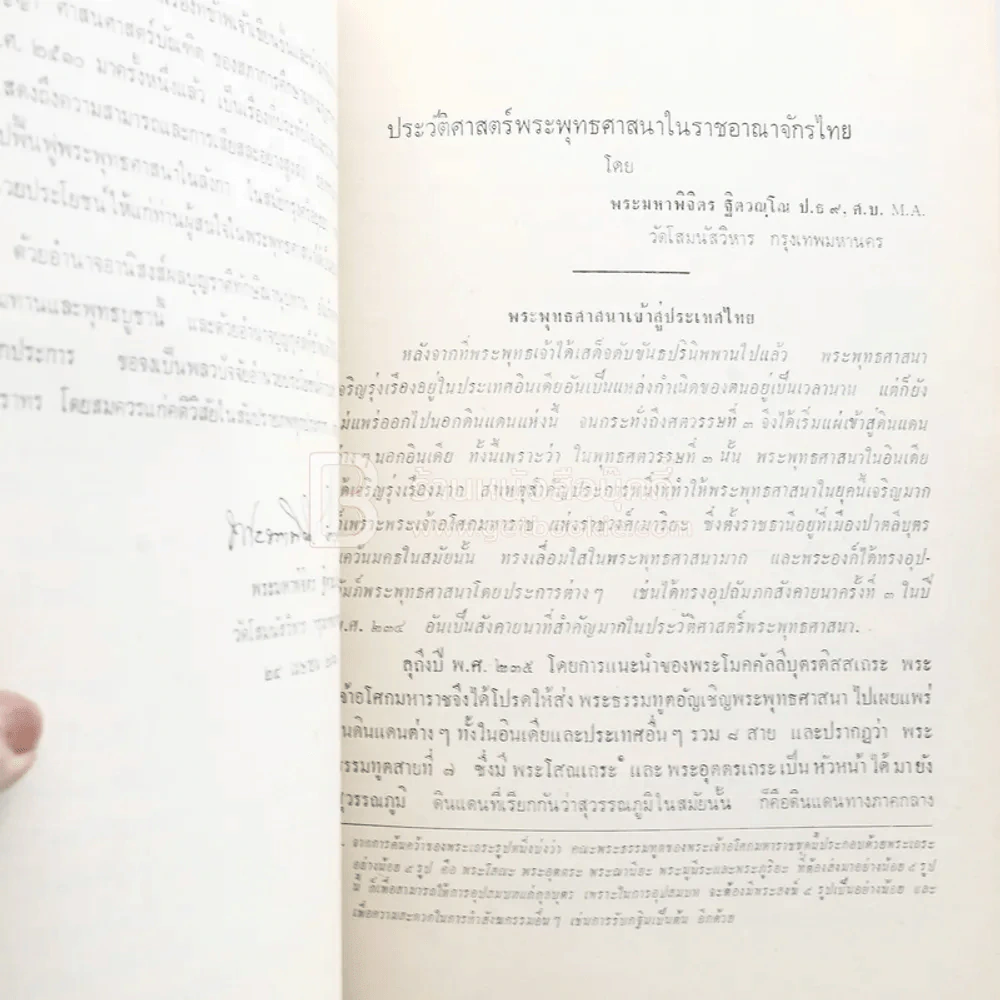 ศาสนศาสตร์บัณฑิต ของสภาการศึกษา
ศ. ๒๕๑๐ มาครั้งหนึ่งแล้ว เป็นเรื่องที่
แสดงถึงความสามารถและการเสียสละอย่างสูง
ฟื้นฟูพระพุทธศาสนาในลังกา ในสมัยกรุงศรีอยุธยา
วยประโยชน์ให้แก่ท่านผู้สนใจในพระพุทธศาสนา
ด้วยอำนาจอานิสงส์ผลบุญราศีทักษิณานุปทาน
และพุทธบูชานี้ และด้วยอำนาจ
กประการ ขอจงเป็นพลวปัจจัย
ราทร โดยสมควรแก่คติวิสัยในสัมปรายภพ
พระมหาพิจิตร
วัดโสมนัสวิหาร
ประวัติศาสตร์พระพุทธศาสนาในราชอาณาจักรไทย
โดย
พระมหาพิจิตร ฐิตวณฺโณ ป.ธ ๙, ศ.บ. M.A.
วัดโสมนัสวิหาร กรุงเทพมหานคร
พระพุทธศาสนาเข้าสู่ประเทศไทย
หลังจากที่พระพุทธเจ้าได้เสด็จดับขันธปรินิพพานไปแล้ว พระพุทธศาสนา
เจริญรุ่งเรืองอยู่ในประเทศอินเดียอันเป็นแหล่งกำเนิดของตนอยู่เป็นเวลานาน แต่ก็ยัง
ม่แพร่ออกไปนอกดินแดนแห่งนี้ จนกระทั่งถึงศตวรรษที่ ๓ จึงได้เริ่มแผ่เข้าสู่ดินแดน
ต่างๆ นอกอินเดีย ทั้งนี้เพราะว่า ในพุทธศตวรรษที่ ๓ นั้น พระพุทธศาสนาในอินเดีย
ด้เจริญรุ่งเรืองมาก สาเหตุสำคัญประการหนึ่งที่ทำให้พระพุทธศาสนาในยุคนี้เจริญมาก
ก็เพราะพระเจ้าอโศกมหาราช แห่งราชวงศ์เมาริยะ ซึ่งตั้งราชธานีอยู่ที่เมืองปาตลีบุตร
แคว้นมคธในสมัยนั้น ทรงเลื่อมใสในพระพุทธศาสนามาก และพระองค์ได้ทรงอุป-
ถัมภ์พระพุทธศาสนาโดยประการต่างๆ เช่นได้ทรงอุปถัมภกสังคายนาครั้งที่ ๓ ในปี
พ.ศ. ๒๓๔ อันเป็นสังคายนาที่สำคัญมากในประวัติศาสตร์พระพุทธศาสนา.
ลุถึงปี พ.ศ. ๒๓๕ โดยการแนะนำของพระโมคคัลลีบุตรติสสเถระ พระ
จ้าอโศกมหาราชจึงได้โปรดให้ส่ง พระธรรมทูตอัญเชิญพระพุทธศาสนา ไปเผยแพร่
นดินแดนต่างๆ ทั้งในอินเดียและประเทศอื่นๆ รวม ๙ สาย และปรากฏว่า พระ
รรมทูตสายที่ ๘ ซึ่งมี พระโสณเถระ๑ และ พระอุตตรเถระ เป็น หัวหน้า ได้ มายัง
สุวรรณภูมิ ดินแดนที่เรียกกันว่าสุวรรณภูมิในสมัยนั้น ก็คือดินแดนทางภาคกลาง
จากการค้นคว้าของพระเถระรูปหนึ่งบ่งว่า คณะพระธรรมทูตของพระเจ้าอโศกมหาราชชุดนี้ประกอบด้วยพระเถระ
อย่างน้อย ๕ รูป คือ พระโสณะ พระอุตตระ พระฌานียะ พระมูนียะและพระภูริยะ ที่ต้องส่งมาอย่างน้อย ๕ รูป
นี้ ก็เพื่อสามารถให้การอุปสมบทแก่กุลบุตร เพราะในการอุปสมบท จะต้องมีพระสงฆ์ ๕ รูปเป็นอย่างน้อย และ
เพื่อความสะดวกในการทำสังฆกรรมอื่นๆ เช่นการรับกฐินเป็นต้น อีกด้วย
ร้านหนังสือบุ๊คดี
www.getbookie.com